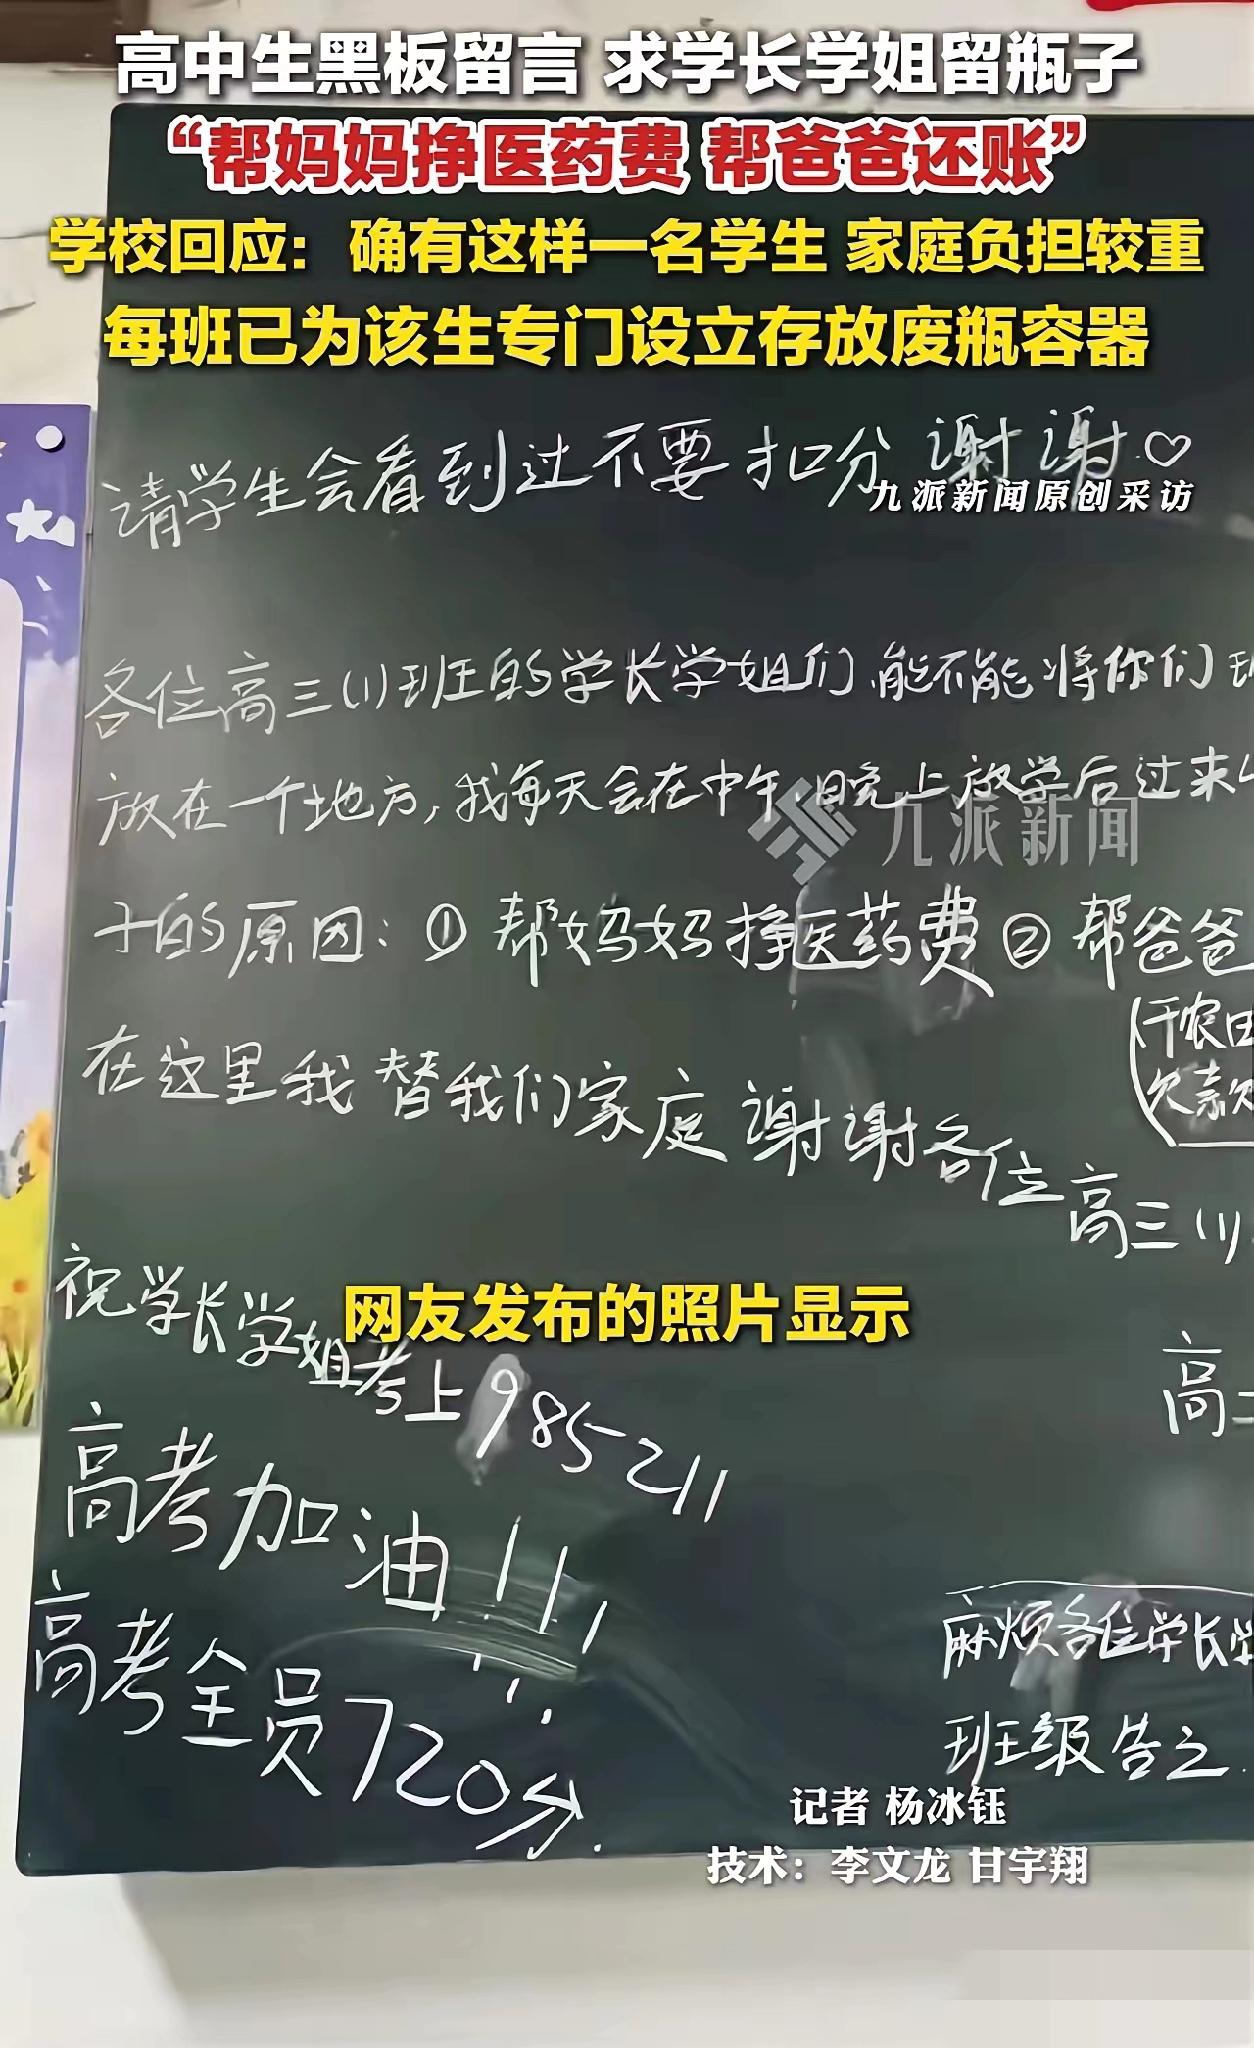 高中生黑板留言 求学长学姐留瓶子
“帮妈妈挣医药费 帮爸爸还账”
学校回应：确有这样一名学生 家庭负担较重
每班已为该生专门设立存放废瓶容器
请学生会看到过不要扣分 谢谢.♡
九派新闻原创采访
各位高三(1)班的学长学姐们,能不能将你们
放在一个地方,我每天会在中午,晚上放学后过来
九派新闻
子的原因:①帮妈妈挣医药费②帮爸爸
(干农
欠款
在这里我替我们家庭谢谢各位高三(1)
祝学长学姐考上985 211
网友发布的照片显示
高
高考加油!!!
高考全员720分.
麻烦各位学长
班级告之.
记者 杨冰钰
技术：李文龙 甘宇翔